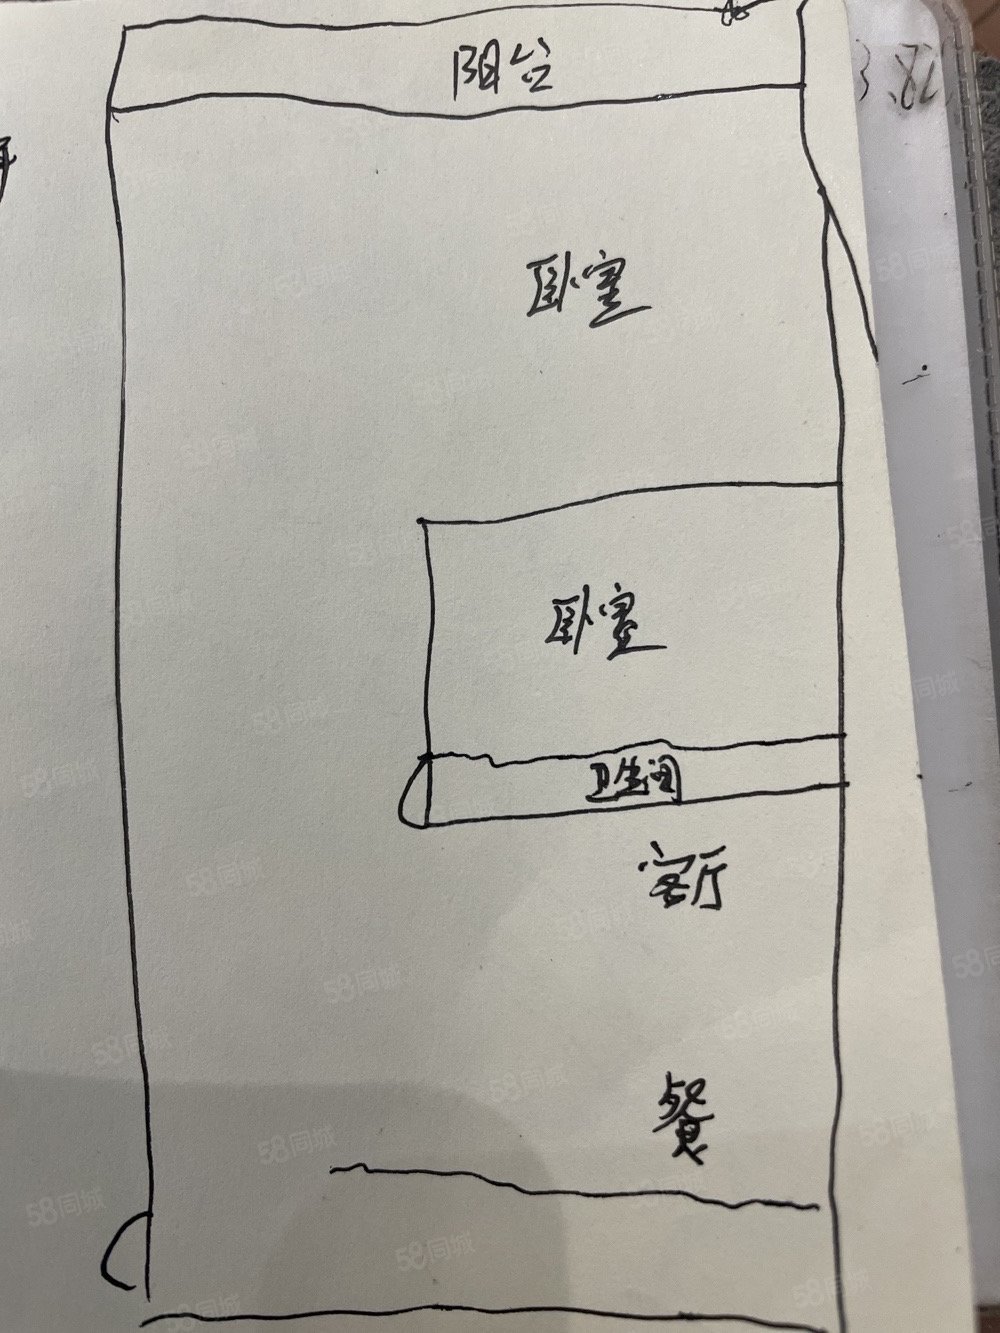 阳台
卧室
卧室
卫生间
客厅
餐
58同城